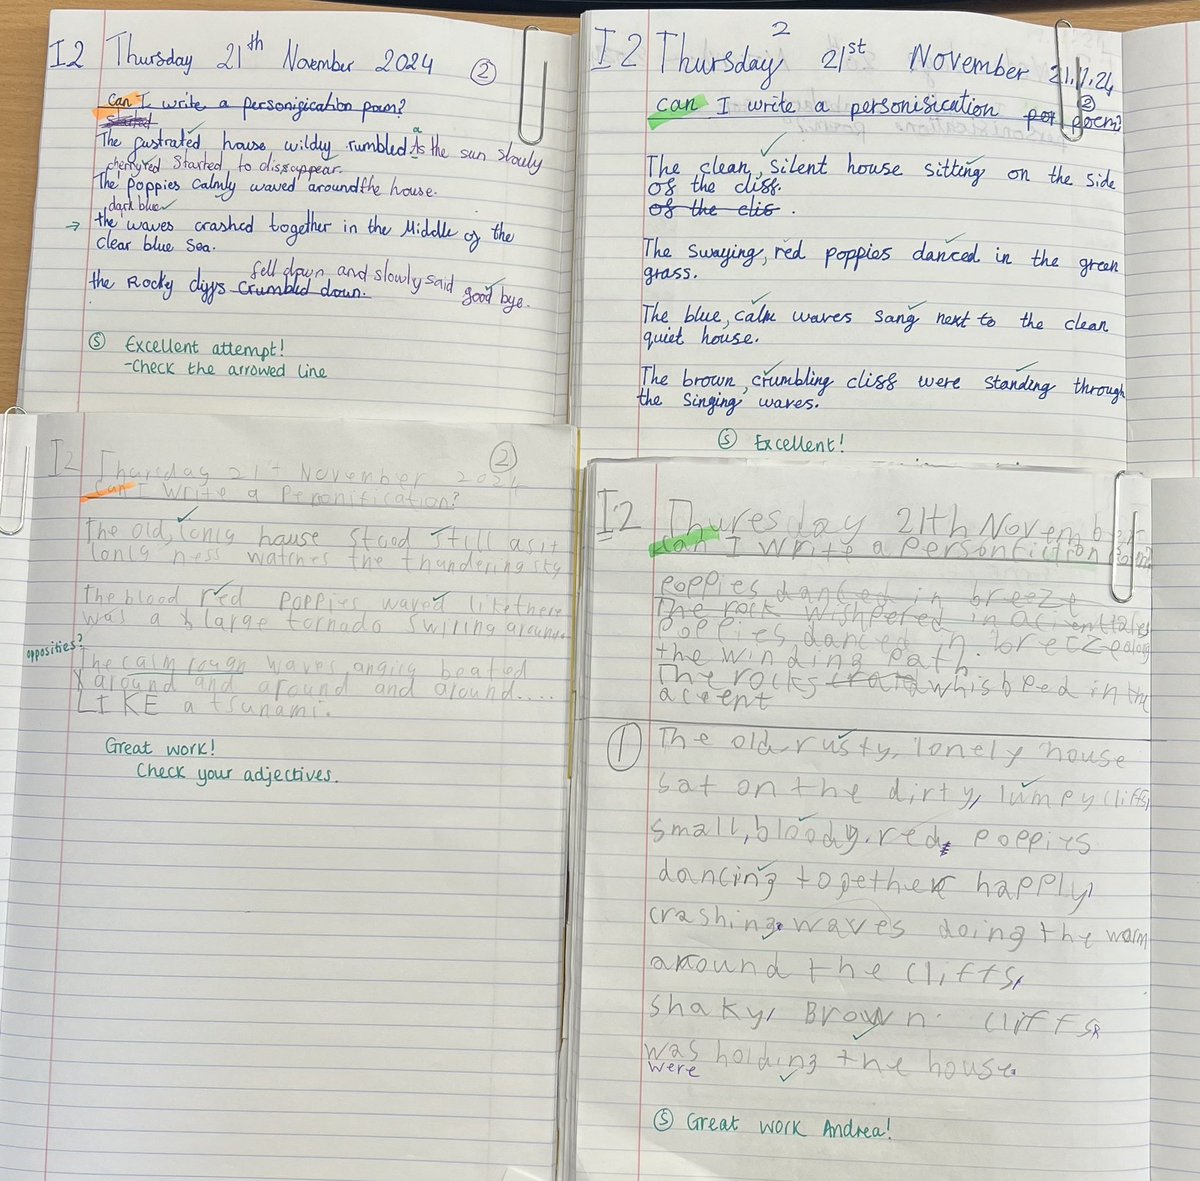 I2 Thursday 21th November 2024 2
Can I write a personification poem?
Started
The fustrated house wildly rumbled As a the sun slowly
cherry red started to dissappear.
The poppies calmly waved around the house.
dark blue
→ the waves crashed together in the Middle of the
clear blue Sea.
fell down and slowly said good bye.
the Rocky cliffs crumbled down.
S Excellent attempt!
-Check the arrowed line
I2 Thursday 2 21st November 21.11.24
can I write a personification poem? 2
The clean, silent house sitting on the side
of the cliff.
of the clif .
The swaying, red poppies danced in the green
grass.
The blue, calm waves sang next to the clean
quiet house.
The brown, crumbling cliff were standing through
the singing waves.
S Excellent!
I2 Thursday 21st November 2024 2
Can I write a Personification?
The old, lonly house stood still as it
lonly ness watches the thundering sky
the blood red poppies waved like there
was a large tornado swiring around
opposities?
The calm rough waves angriy beated
X around and around and around....
LIKE a tsunami.
Great work!
Check your adjectives.
I2 Thuresday 21th November
Can I write a personfiction
poppies danced in breeze
The rock wishpered in
poppies danced in breeze along
the winding path
The rocks whisbped in the
accent
1 The old, rusty, lonely house
sat on the dirty, lumpey cliffs,
small, bloody, red, poppies
dancing together happly,
crashing, waves doing the warm
around the cliffs,
shaky, Brown cliffs,
was holding the house.
were
S Great work Andrea!